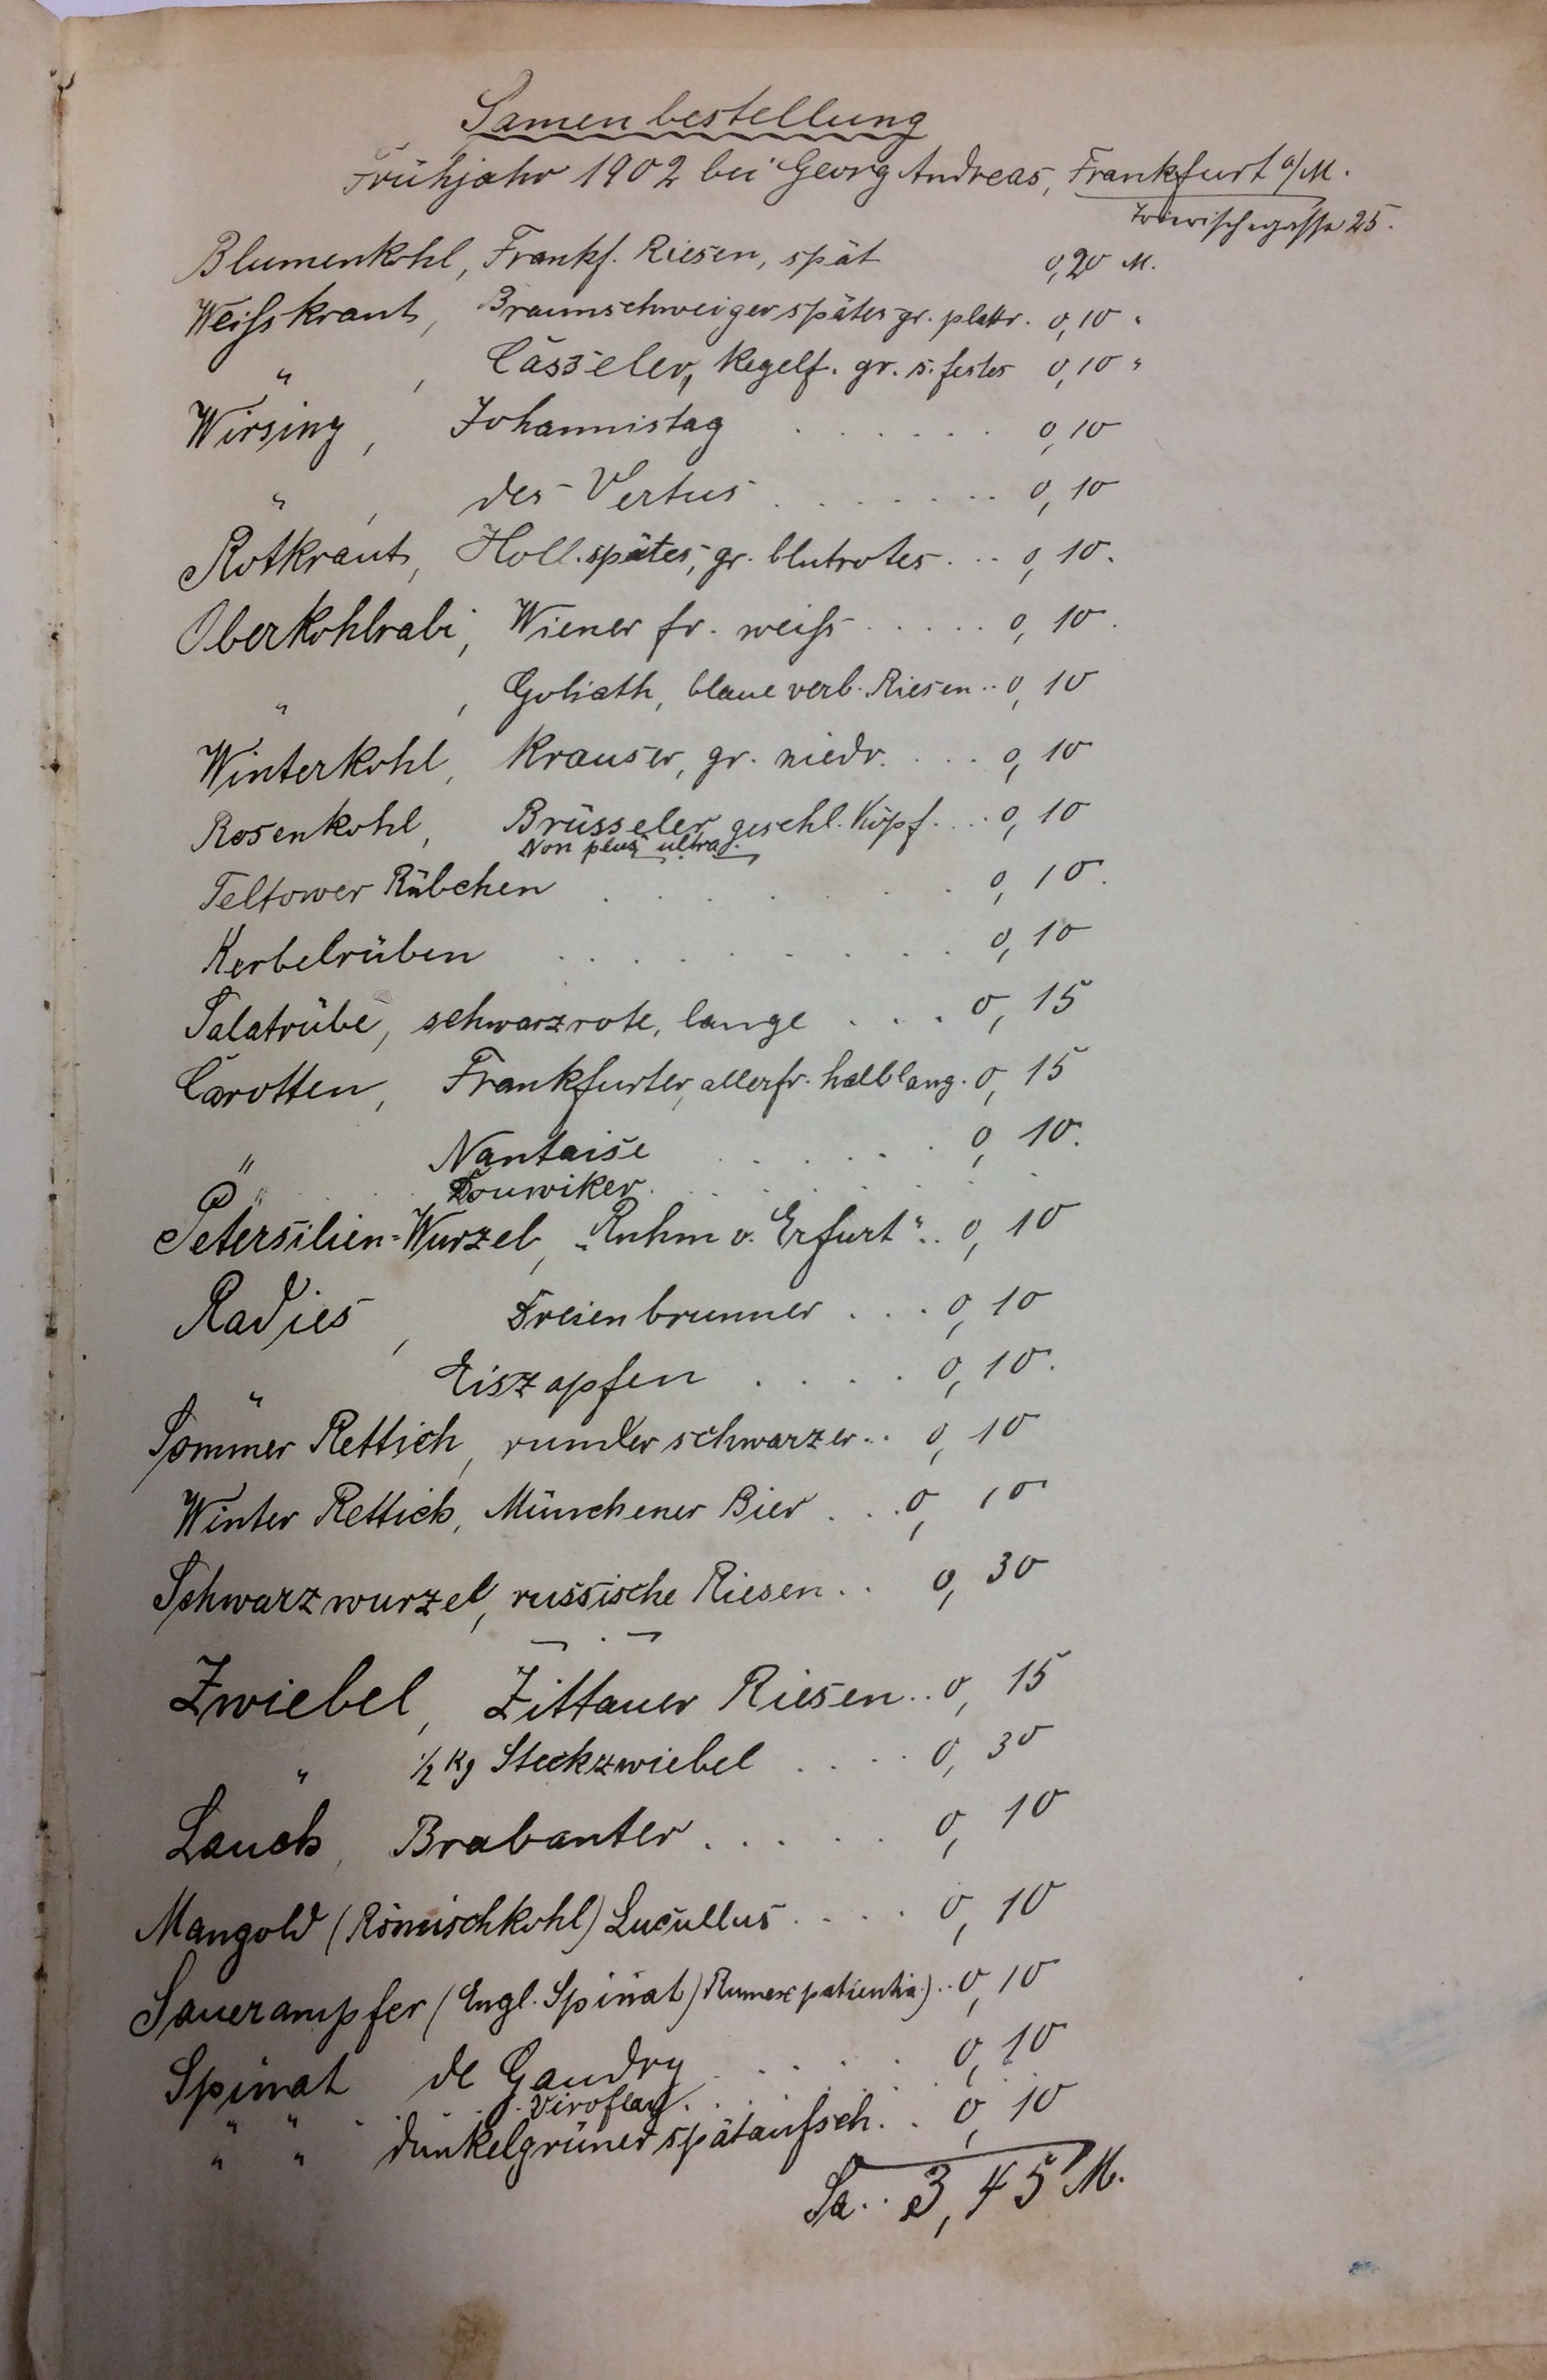 Samenbestellung
Frühjahr 1902 bei Georg Andreas, Frankfurt a/M.
Trierischegasse 25.
Blumenkohl, Frankf. Riesen, spät 0,20 M.
Weisskraut, Braunschweiger spätes gr. plattr. 0,10 "
" , Casseler, Kegelf. gr. s. festes 0,10 "
Wirsing, Johannistag . . . . . . 0,10
" , des Vertus . . . . . . . 0,10
Rotkraut, Holl. spätes, gr. blutrotes . . . 0,10.
Oberkohlrabi, Wiener fr. weiss . . . . . 0,10.
" , Goliath, blaue verb. Riesen . . 0,10
Winterkohl, Krauser, gr. niedr. . . . 0,10
Rosenkohl, Brüsseler geschl. Köpf. . . . 0,10
Non plus ultra.
Teltower Rübchen . . . . . . 0,10.
Kerbelrüben . . . . . . . . 0,10
Salatrübe, schwarzrote, lange . . . 0,15
Carotten, Frankfurter, allerfr. halblang. 0,15
" Nantaise . . . . . . 0,10.
" Douwiker. . . . . . . . .
Petersilien-Wurzel, „Ruhm v. Erfurt“ . . 0,10
Radies, Dreienbrunner . . . 0,10
" Eiszapfen . . . . . 0,10.
Sommer Rettich, runder schwarzer . . 0,10
Winter Rettich, Münchener Bier . . . 0,10
Schwarzwurzel, russische Riesen . . 0,30
Zwiebel, Zittauer Riesen . . 0,15
" 1/2 Kg Steckzwiebel . . . . 0,30
Lauch, Brabanter . . . . . . 0,10
Mangold (Römischkohl) Lucullus . . . . 0,10
Sauerampfer (Engl. Spinat) Rumex patientia) . . 0,10
Spinat de Gaudry . . . . . 0,10
" " . . . . Viroflay. . . . . . . .
" " dunkelgrüner spätaufsch. . . 0,10
Sa . . 3,45 M.